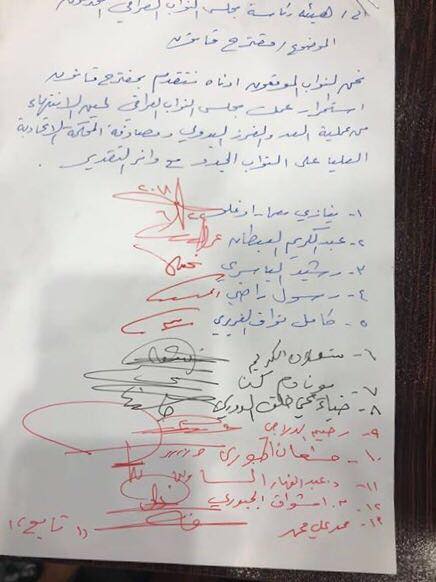 الى / هيئة رئاسة مجلس النواب العراقي المحترمون
الموضوع / مقترح قانون
نحن النواب الموقعون ادناه نتقدم بمقترح قانون
استمرار عمل مجلس النواب العراقي لحين الانتهاء
من عملية العد والفرز اليدوي ومصادقة المحكمة الاتحادية
العليا على النواب الجدد مع وافر التقدير
١- نيازي معمار اوغلو
٢- عبد الكريم العبطان
٣- رشيد الياسري
٤- رسول راضي
٥- كامل نواف الغريري
٦- شعلان الكريم
٧- يونادم كنا
٨- ضياء نجي خلف الدوري
٩- رحيم الدراجي
١٠- مشعان الجبوري
١١- د. عبد القهار السا
١٢- م. اشواق الجبوري
١٣- محمد علي محمد
(١ تابع ٢)